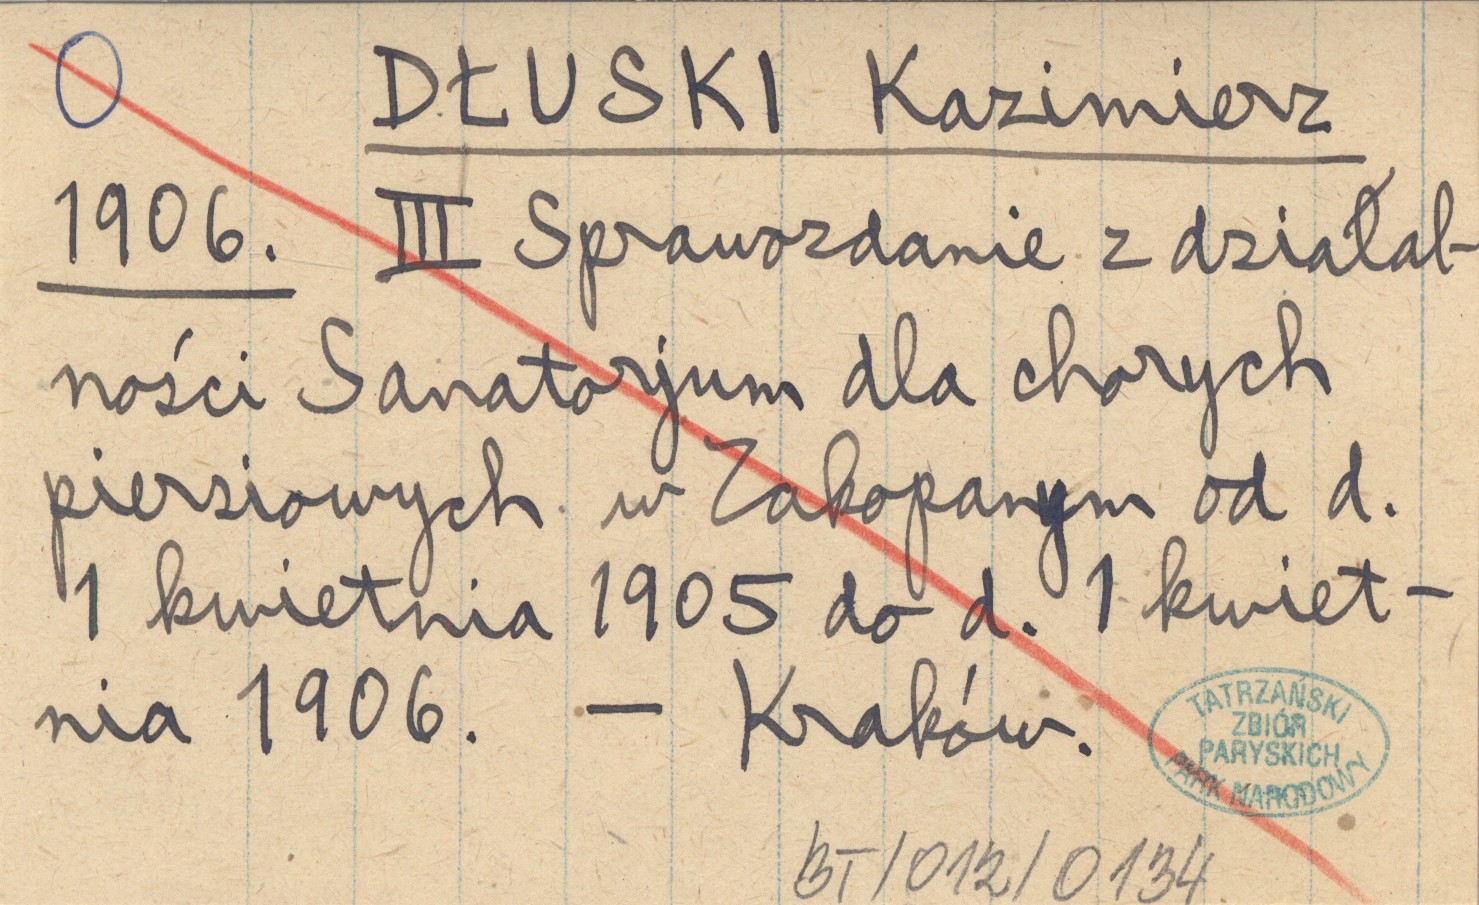 DŁUSKI Kazimierz
1906. III Sprawozdanie z działal-
ności Sanatorjum dla chorych
piersiowych w Zakopanym od d.
1 kwietnia 1905 do d. 1 kwiet-
nia 1906. — Kraków.
TATRZAŃSKI
ZBIÓR
PARYSKICH
PARK NARODOWY
BT/012/0134